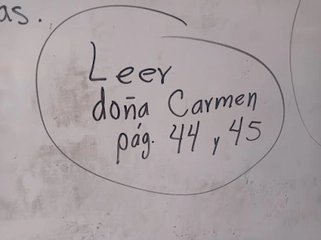 as.
Leer
doña Carmen
pág. 44 y 45